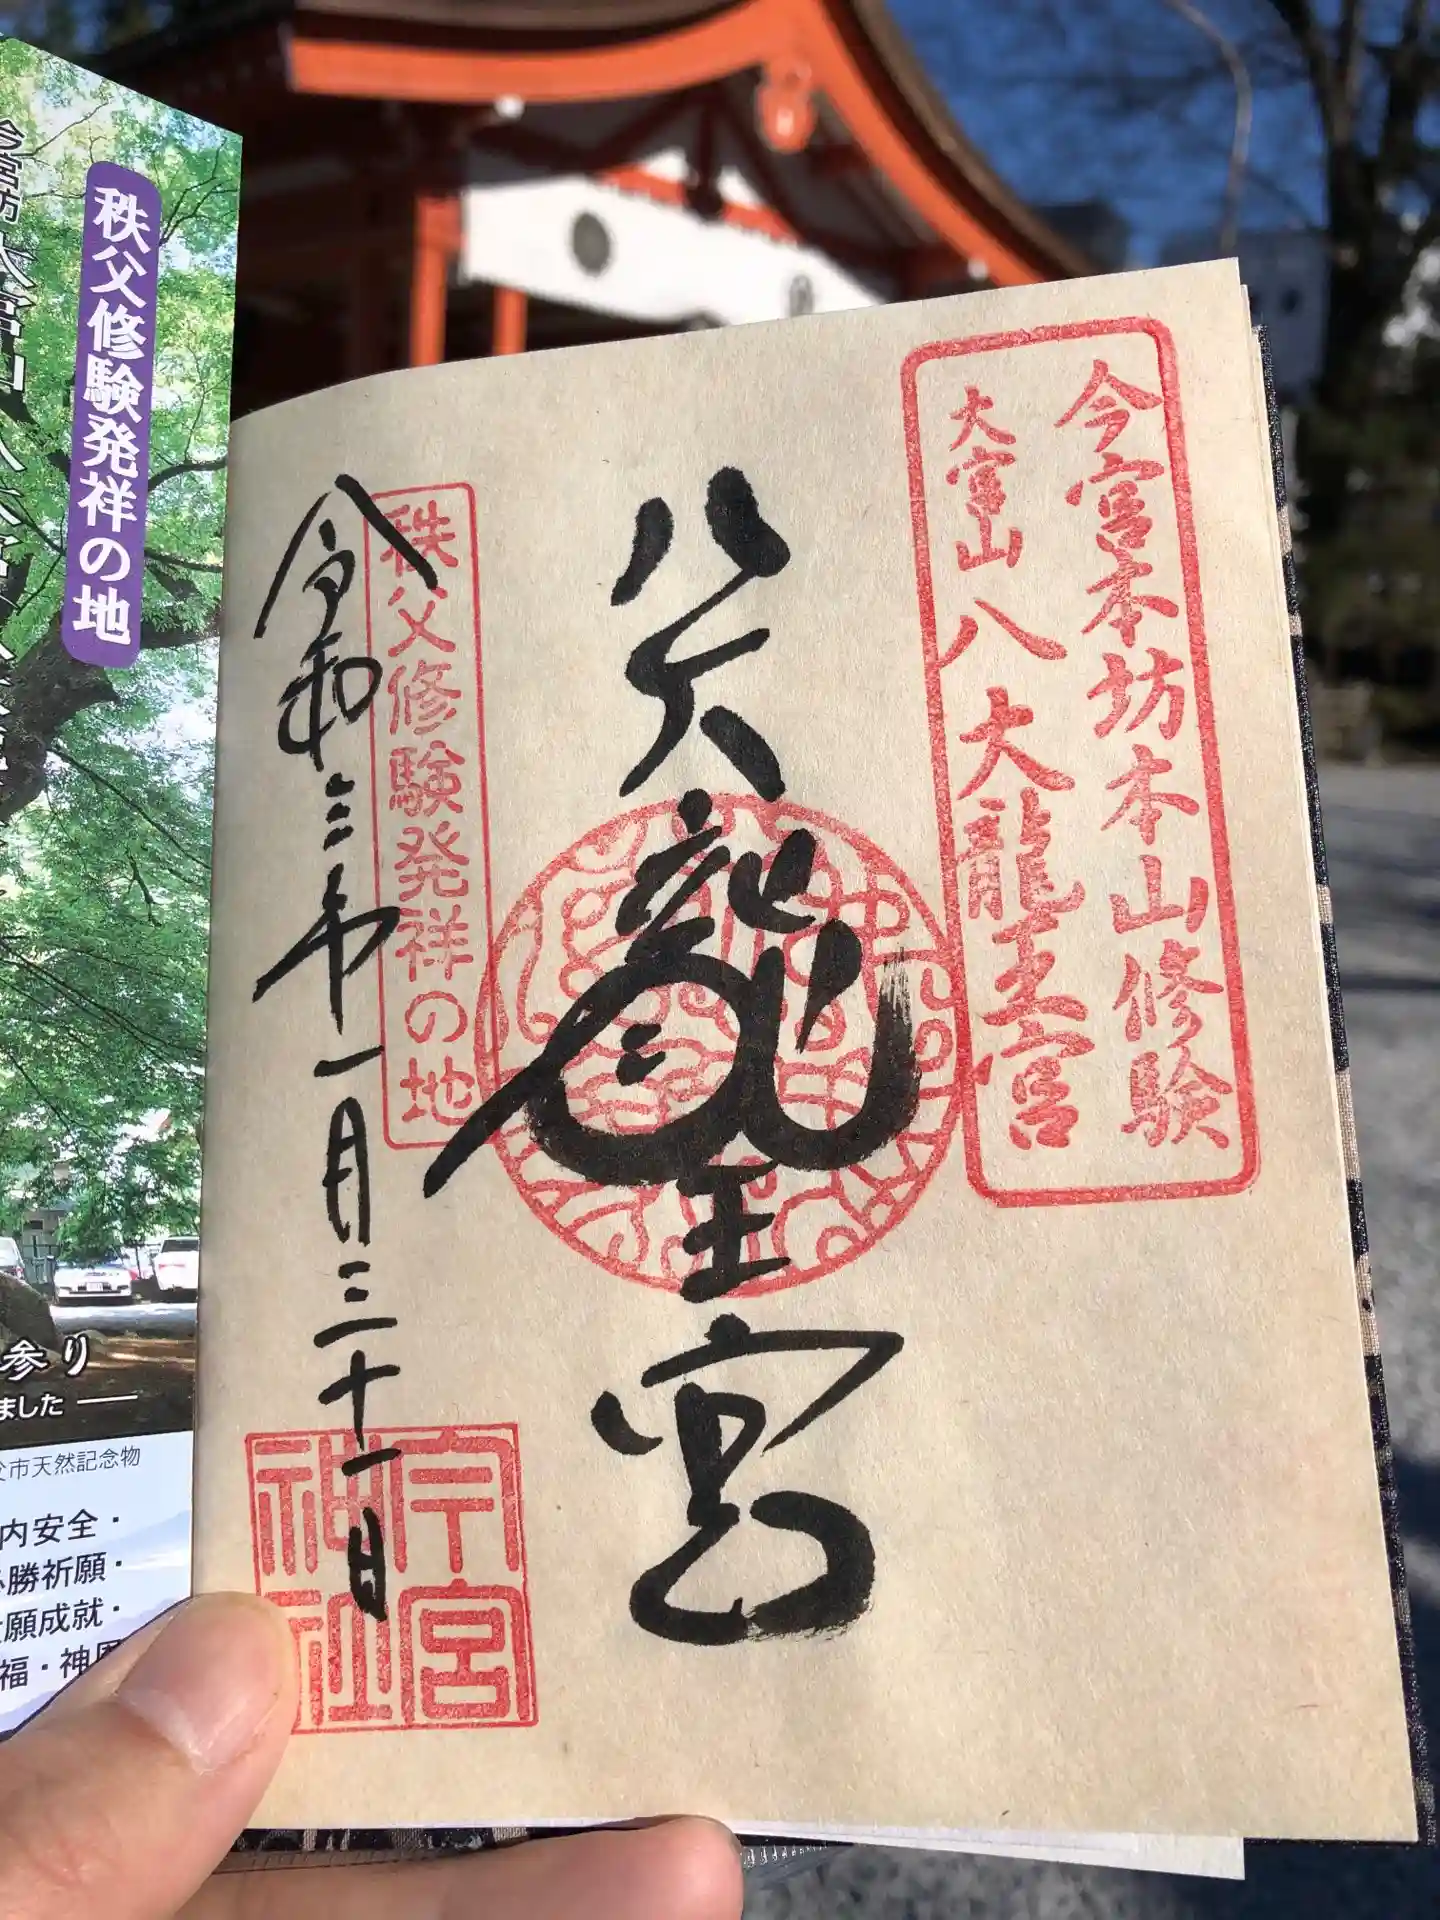 今宮本坊本山修験
大宮山八大龍王宮
八大龍王宮
秩父修験発祥の地
令和三年一月三十一日
今宮
神社
秩父修験発祥の地
参り
ました
父市天然記念物
内安全・
勝祈願・
願成就・
福・神